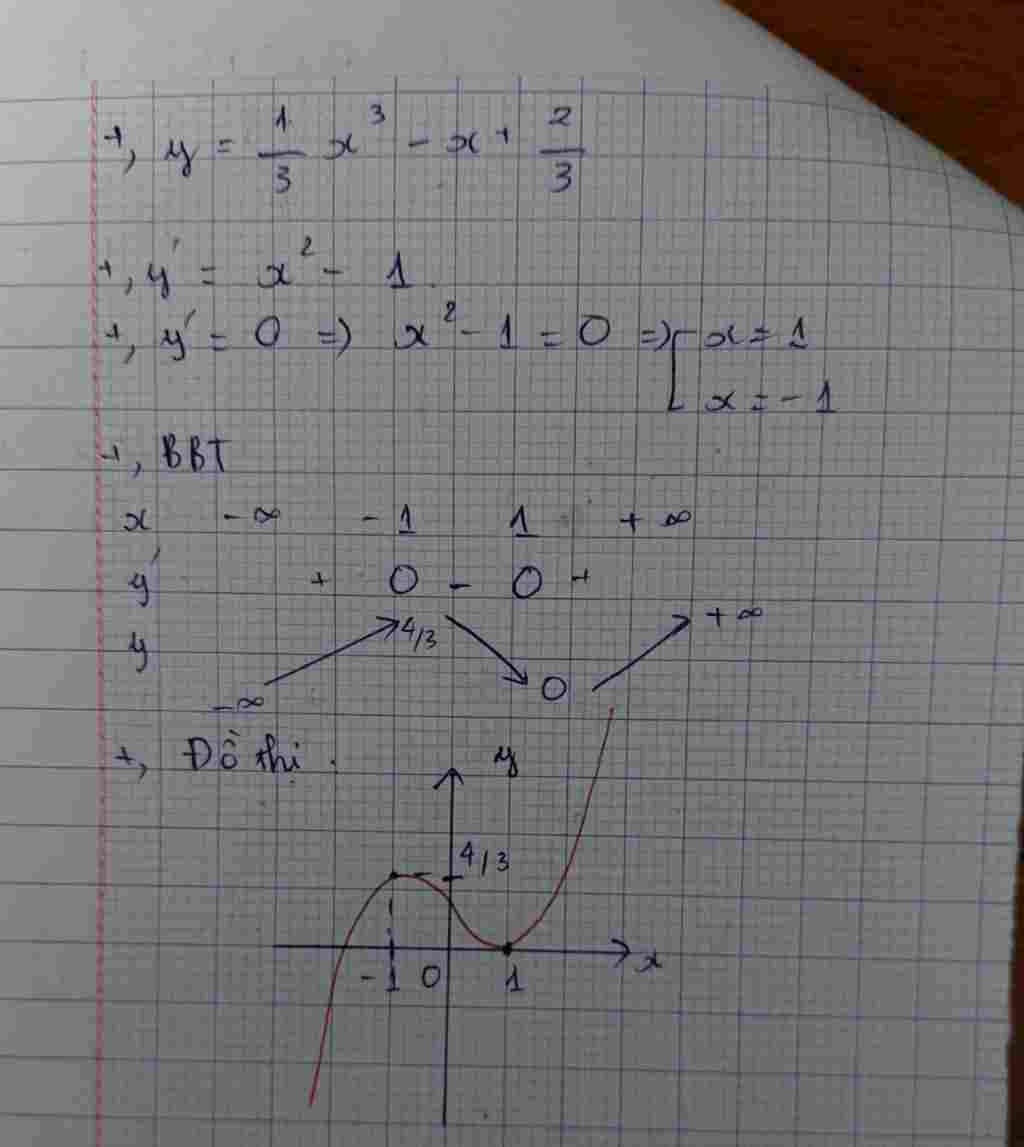 +, y = 1/3 x³ - x + 2/3
+, y' = x² - 1
+, y' = 0 => x² - 1 = 0 => [ x = 1
x = -1
+, BBT
x -∞ -1 1 +∞
y' + 0 - 0 +
y 4/3 +∞
-∞ 0
+, Đồ thị.
y
4/3
-1 0 1 x